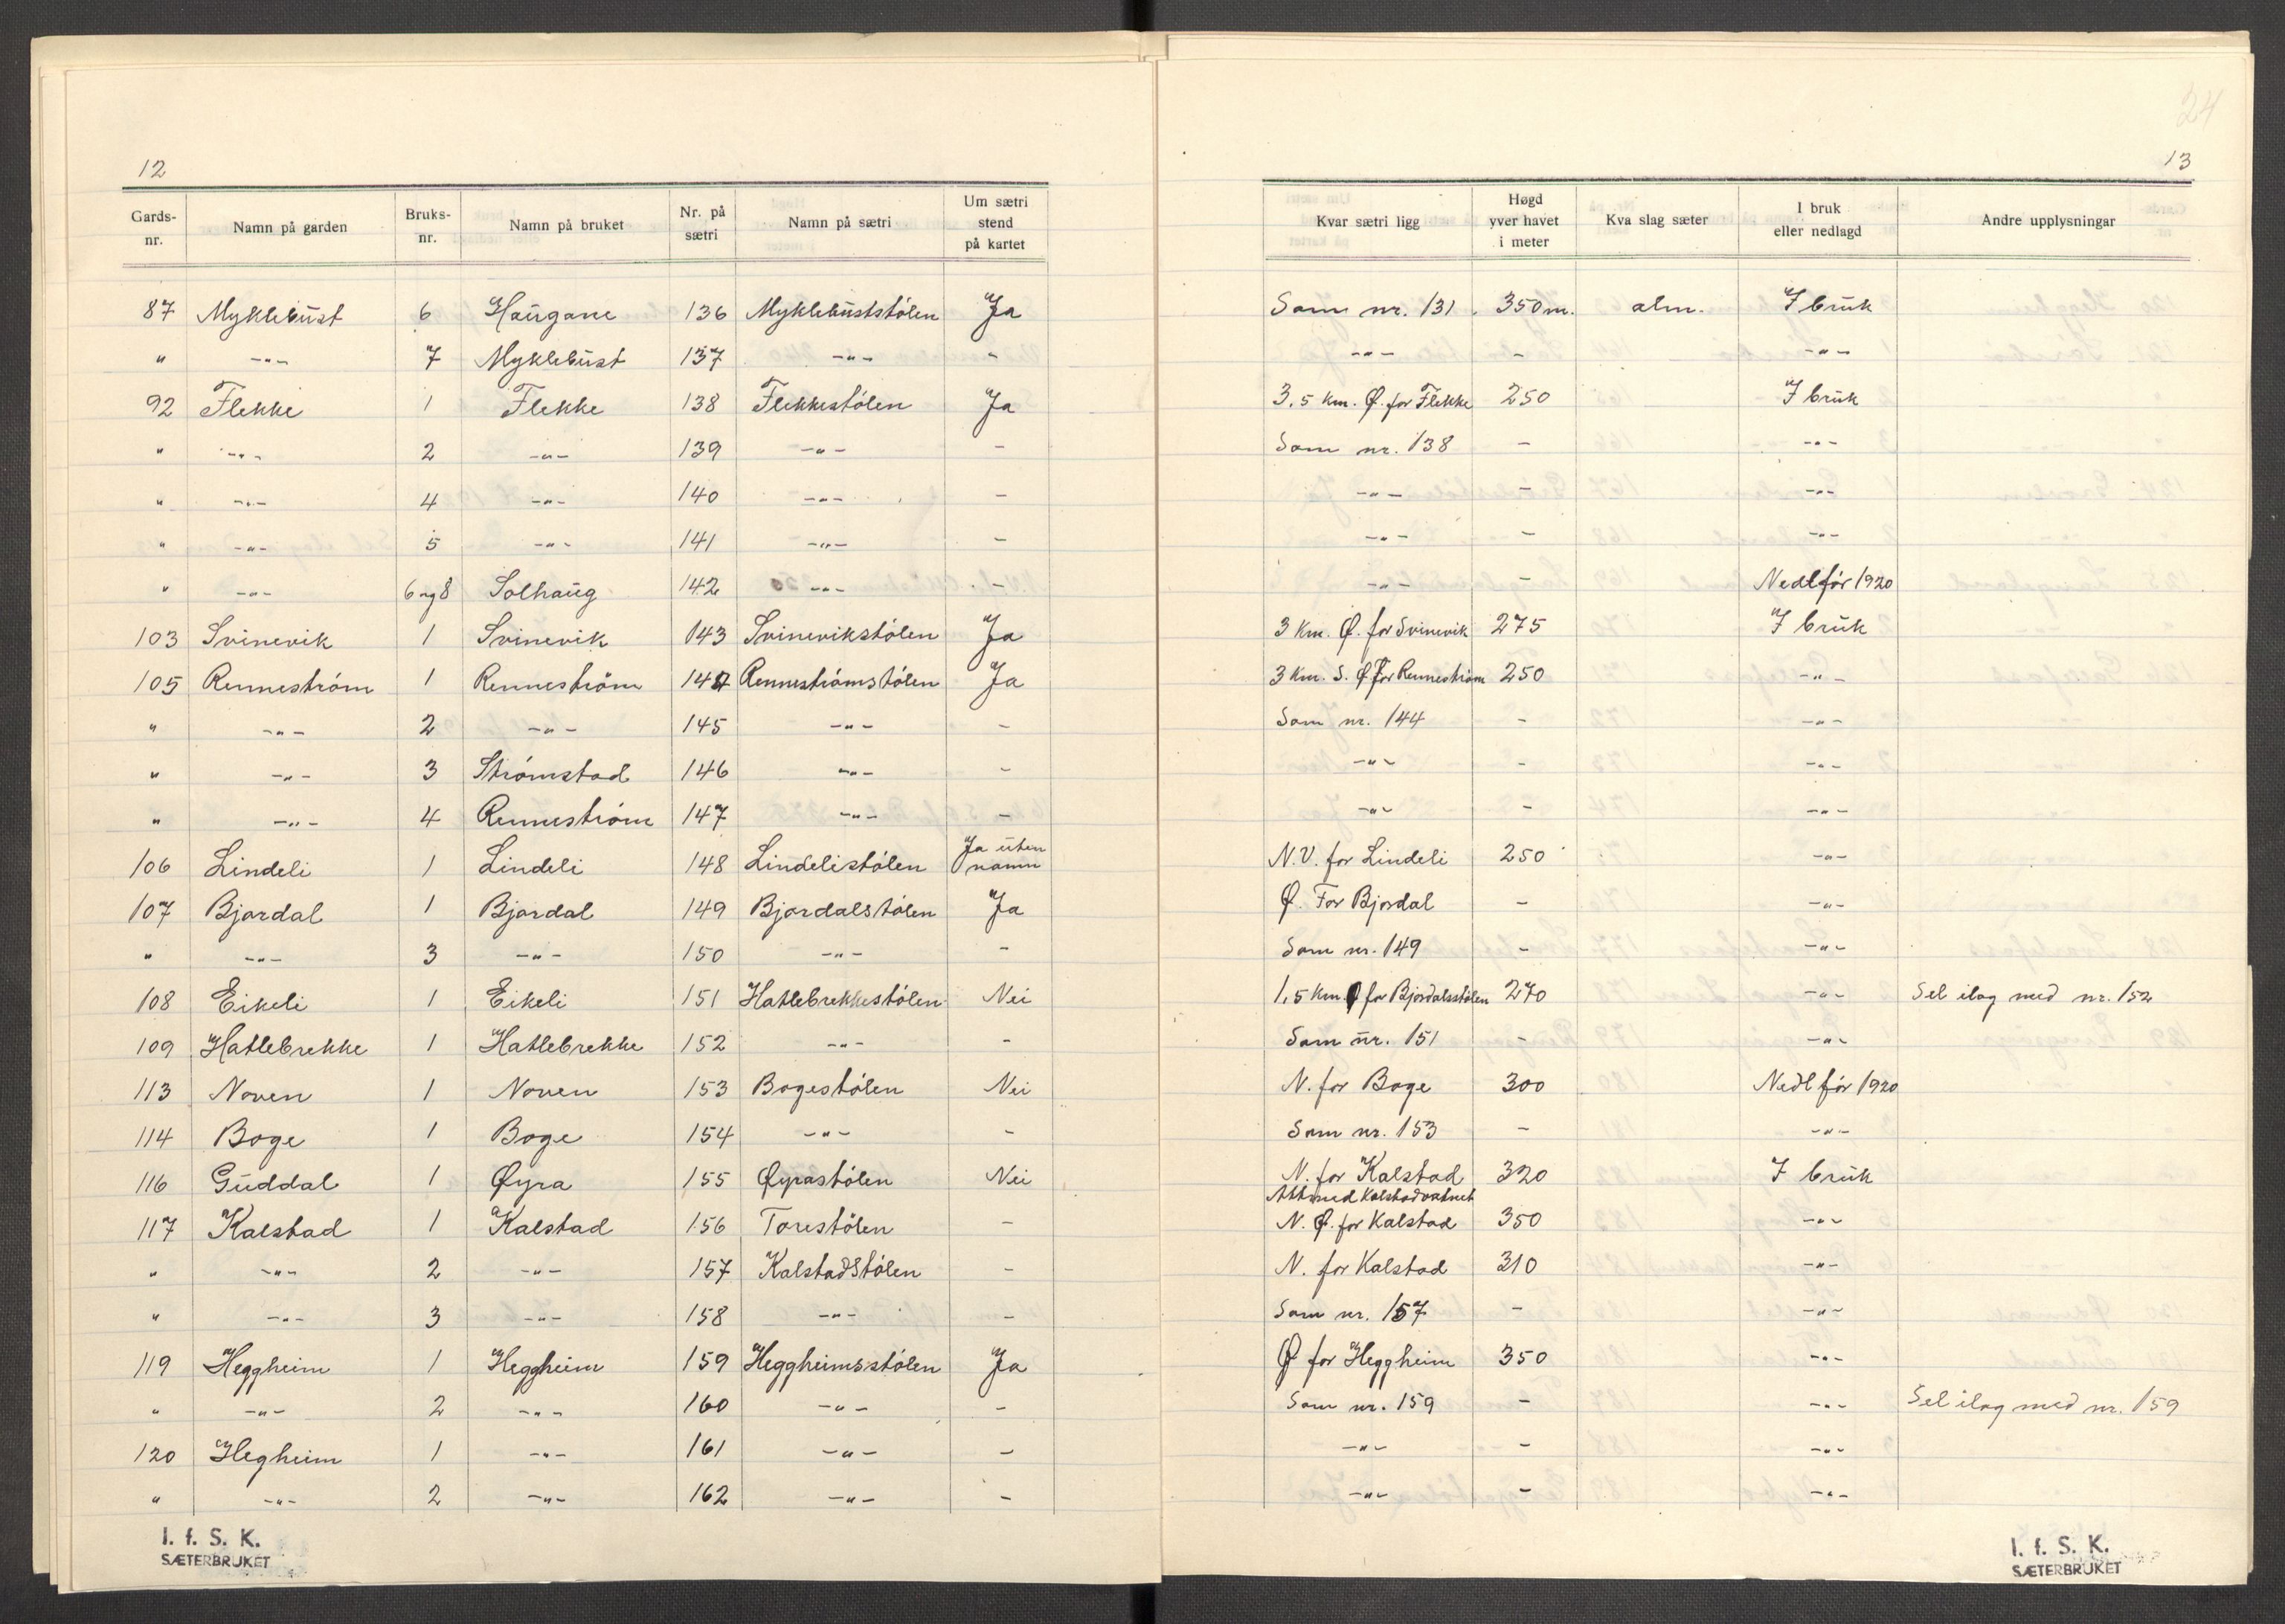 12
Gards-nr. Namn på garden Bruks-nr. Namn på bruket Nr. på sætri Namn på sætri Um sætri stend på kartet
87 Myklebust 6 Haugane 136 Myklebuststølen Ja
" -"- 7 Myklebust 137 -"- -
92 Flekke 1 Flekke 138 Flekkestølen Ja
" -"- 2 -"- 139 -"- -
" -"- 4 -"- 140 -"- -
" -"- 5 -"- 141 -"- -
" -"- 6 og 8 Solhaug 142 -"- -
103 Svinevik 1 Svinevik 143 Svinevikstølen Ja
105 Rennestrøm 1 Rennestrøm 144 Rennestrømstølen Ja
" -"- 2 -"- 145 -"- -
" -"- 3 Strømstad 146 -"- -
" -"- 4 Rennestrøm 147 -"- -
106 Lindeli 1 Lindeli 148 Lindelistølen Ja uten namn
107 Bjordal 1 Bjordal 149 Bjordalstølen Ja
" -"- 3 -"- 150 -"- -
108 Eikeli 1 Eikeli 151 Hatlebrekkestølen Nei
109 Hatlebrekke 1 Hatlebrekke 152 -"- -
113 Noven 1 Noven 153 Bogestølen Nei
114 Boge 1 Boge 154 -"- -
116 Guddal 1 Øyra 155 Øyrastølen Nei
117 Kalstad 1 Kalstad 156 Torestølen -
" -"- 2 -"- 157 Kalstadstølen -
" -"- 3 -"- 158 -"- -
119 Heggheim 1 Heggheim 159 Heggheimsstølen Ja
" -"- 2 -"- 160 -"- -
120 Hegheim 1 -"- 161 -"- -
" -"- 2 -"- 162 -"- -
I. f. S. K.
SÆTERBRUKET
24
13
Kvar sætri ligg Høgd yver havet i meter Kva slag sæter I bruk eller nedlagd Andre upplysningar
Som nr. 131. 350 m. alm. I bruk
-"- - -"-
3,5 km. Ø. for Flekke 250 I bruk
Som nr. 138 - -"-
-"- - -"-
-"- - -"-
-"- - Nedl før 1920
3 km. Ø. for Svinevik 275 I bruk
3 km. S. Ø for Rennestrøm 250 -"-
Som nr. 144 - -"-
-"- - -"-
-"- - -"-
N.V. for Lindeli 250 -"-
Ø. For Bjordal - -"-
Som nr. 149 - -"-
1,5 km. Ø for Bjordalsstølen 270 -"- Sel ilag med nr. 152
Som nr. 151 - -"-
N. for Boge 300 Nedl før 1920
Som nr. 153 - -"-
N. for Kalstad 320 I bruk
Attmed Kalstadvatnet
N. Ø. for Kalstad 350 -"-
N. for Kalstad 310 -"-
Som nr. 157 - -"-
Ø for Heggheim 350 -"-
Som nr. 159 - -"- Sel ilag med nr. 159
-"- - -"-
-"- - -"-
I. f. S. K.
SÆTERBRUKET